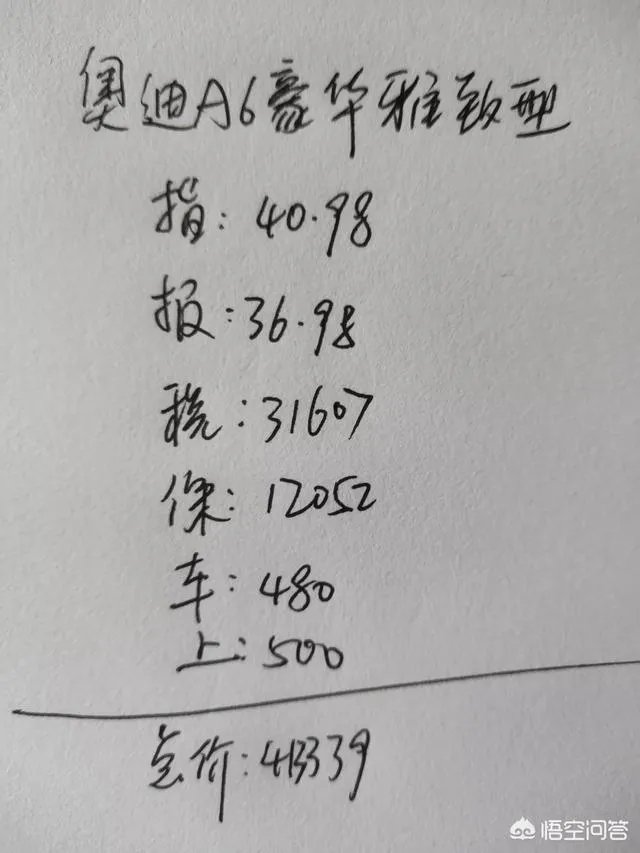 奥迪A6豪华雅致型
指:40.98
报:36.98
税:31607
保:12052
车:480
上:500
总价:413339
悟空问答